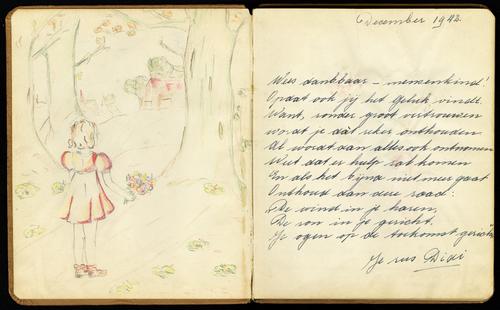 December 1942.
Wees dankbaar – mensenkind!
Opdat ook jij het geluk vindt.
Want, zonder groot vertrouwen
word je dat zeker onthouden
Al wordt van alles ook ontnomen
Weet dat er hulp zal komen
En als het bijna niet meer gaat
Onthoud dan deze raad:
De wind in je haren,
De zon in je gezicht.
Je ogen op de toekomst gericht
Je zus Didi